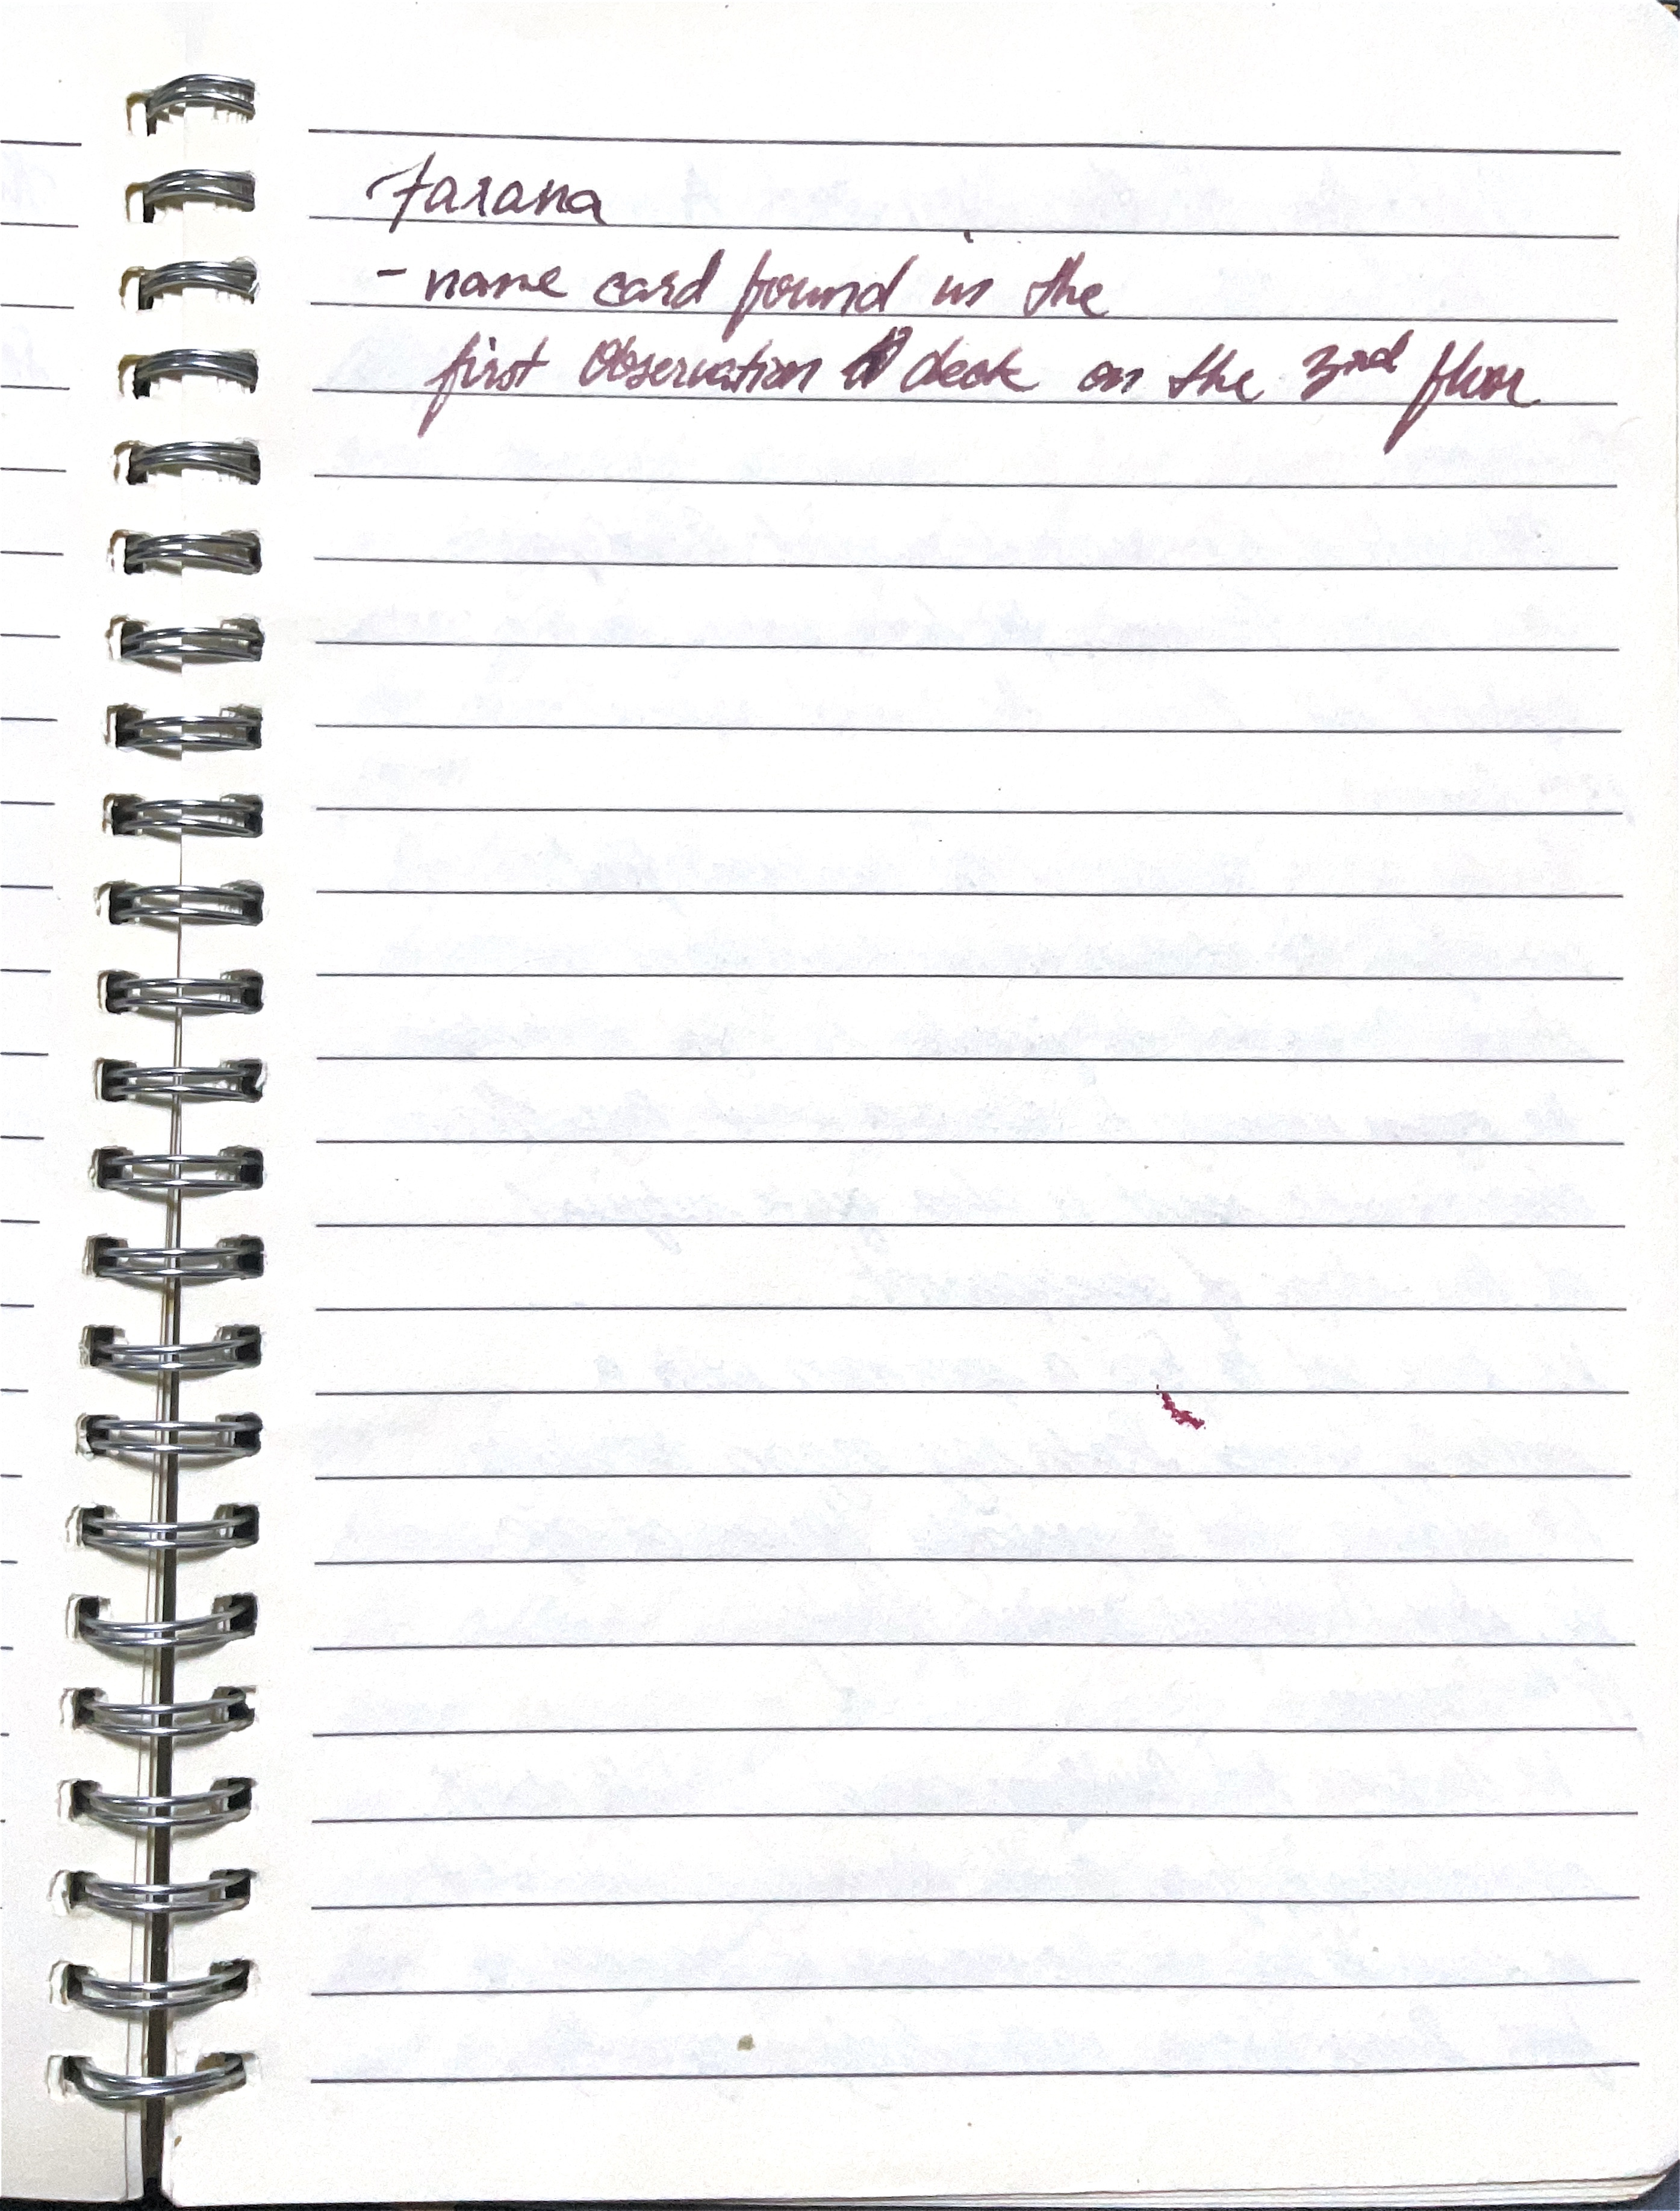 Farana
- name card found in the
first Observation deck on the 3nd floor